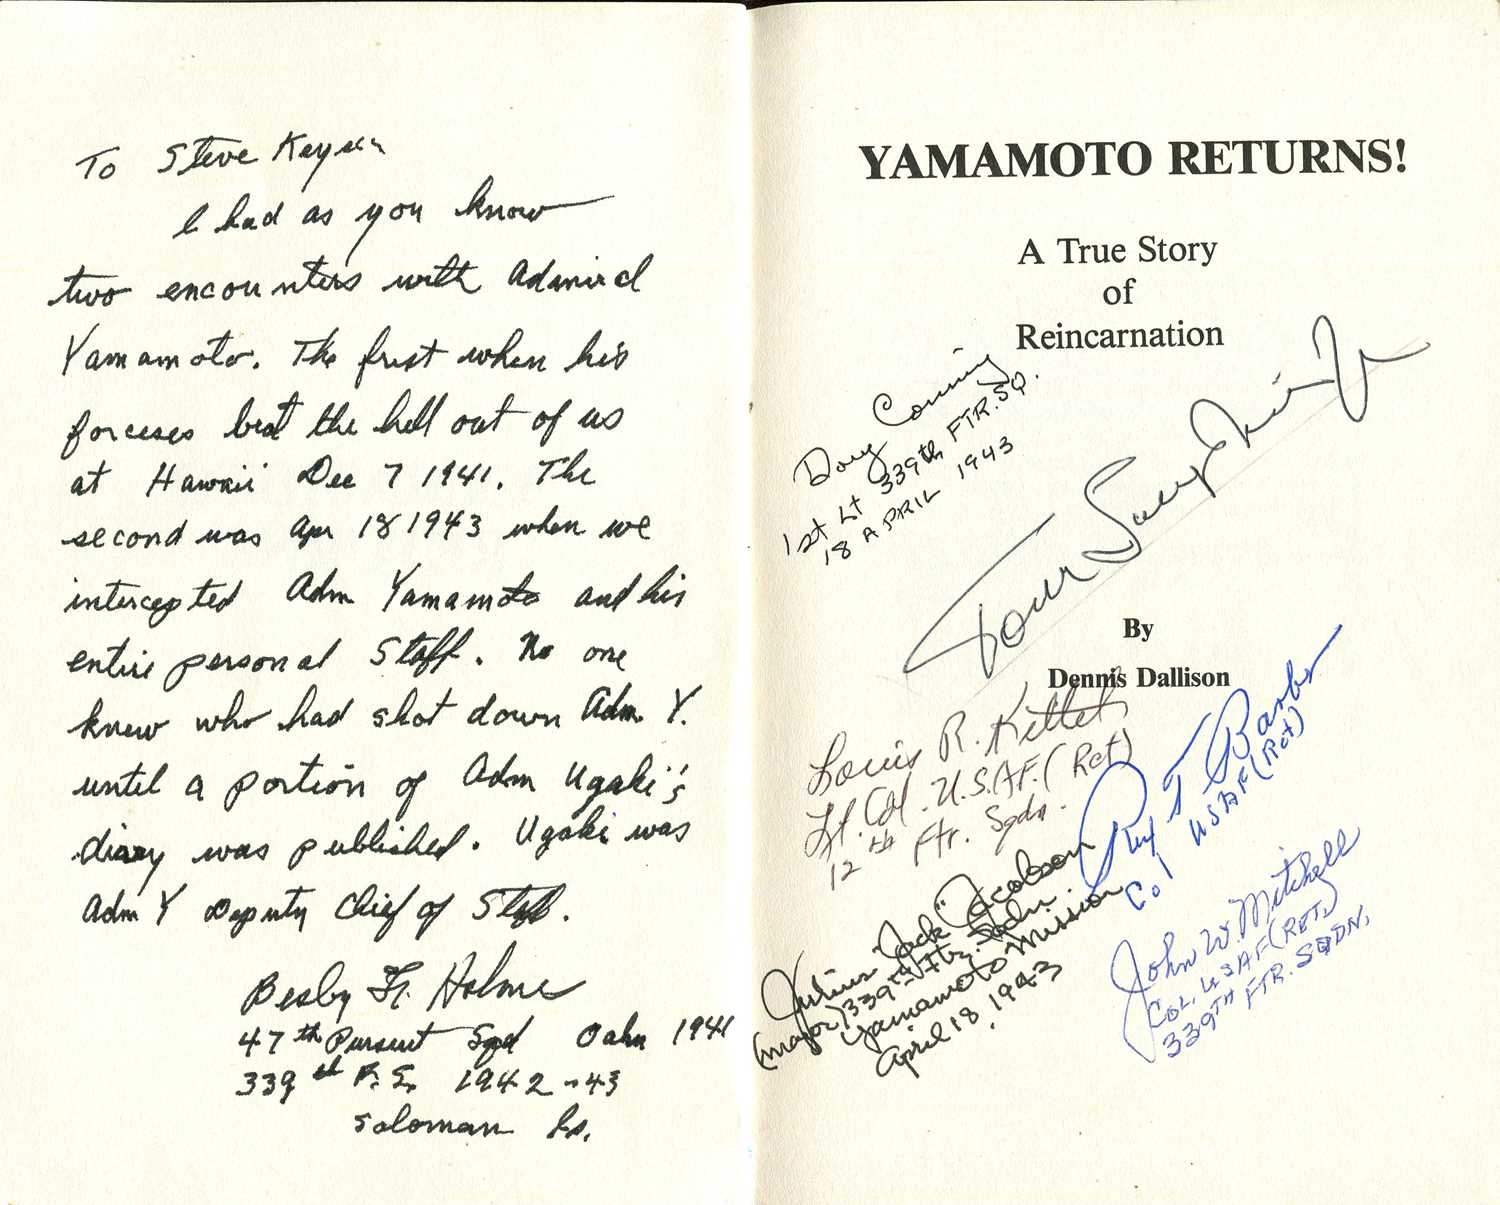 To Steve
I had as you know
two encounters with Admiral
Yamamoto. The first when his
forceses beat the hell out of us
at Hawaii Dec 7 1941. The
second was Apr 18 1943 when we
intercepted Adm Yamamoto and his
entire personal Staff. No one
knew who had shot down Adm. Y.
until a portion of Adm Ugaki's
diary was published. Ugaki was
Adm Y Deputy Chief of Staff.
Besby F. Holmes
47th Pursuit Sqd Oahu 1941
339th F.S. 1942-43
Soloman Is.
YAMAMOTO RETURNS!
A True Story
of
Reincarnation
Doug Canning
1st Lt 339th FTR.SQ.
18 APRIL 1943
By
Dennis Dallison
Louis R. Kittel
Lt. Col. U.S.A.F. (Ret)
12th Ftr. Sqdn.
Rex T Barber
Col USAF (Ret)
Julius "Jack" Jacobson
(major) 339th Ftr. Sqdn
Yamamoto Mission
April 18, 1943
John W. Mitchell
COL, USAF (RET,)
339TH FTR. SQDN,